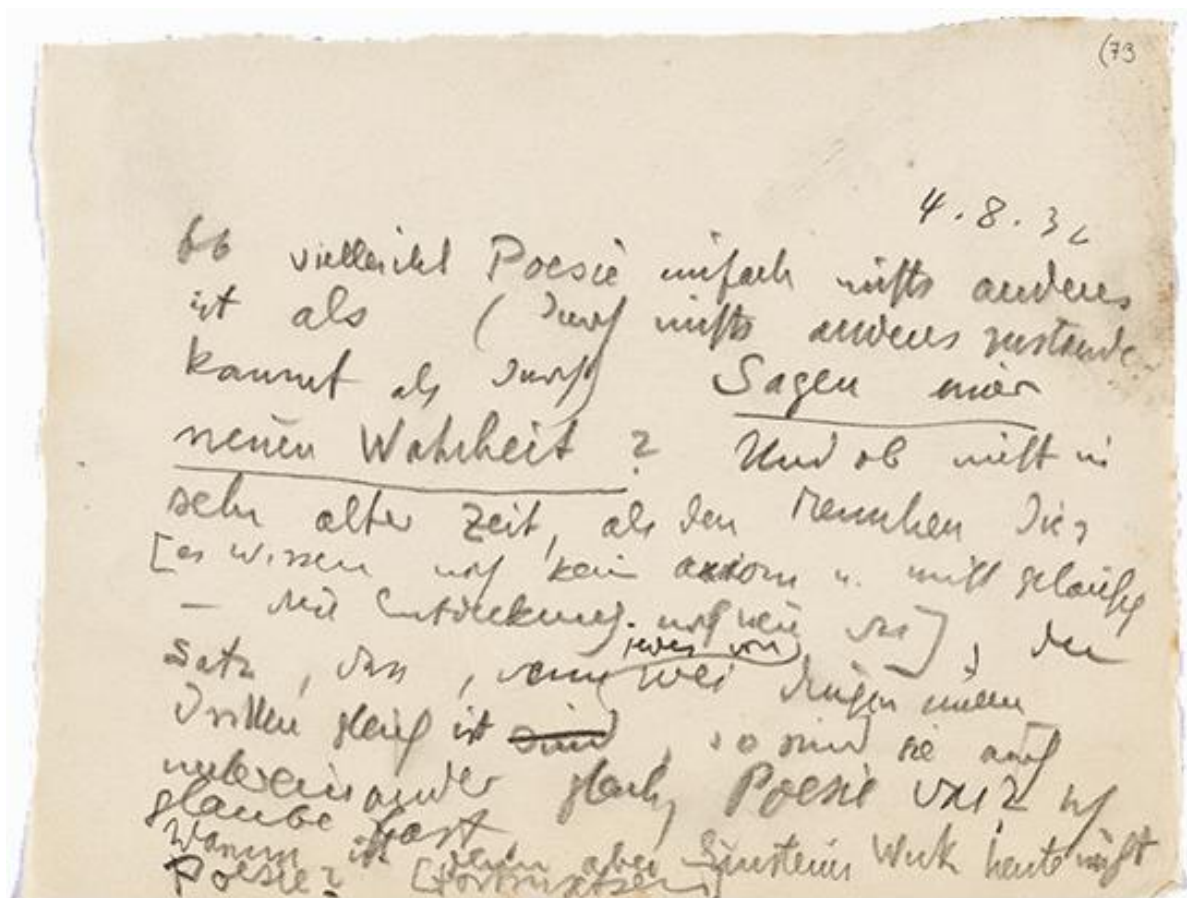 (79
4.8.32
Ob vielleicht Poesie einfach nichts anderes
ist als (durch nichts anderes zustande
kommt als durch) Sagen einer
neuen Wahrheit? Und ob nicht in
sehr alter Zeit, als den Menschen dies
[es wissen noch kein axiom u. nicht geläufig
– die Entdeckung noch neu war], der
jedes von
Satz, dass, wenn zwei Dingen einem
Dritten gleich ist sind, so sind sie auch
untereinander gleich, Poesie war? Ich
glaube fast
Warum ist denn aber Einsteins Werk heute nicht
Poesie? [Fortzusetzen]